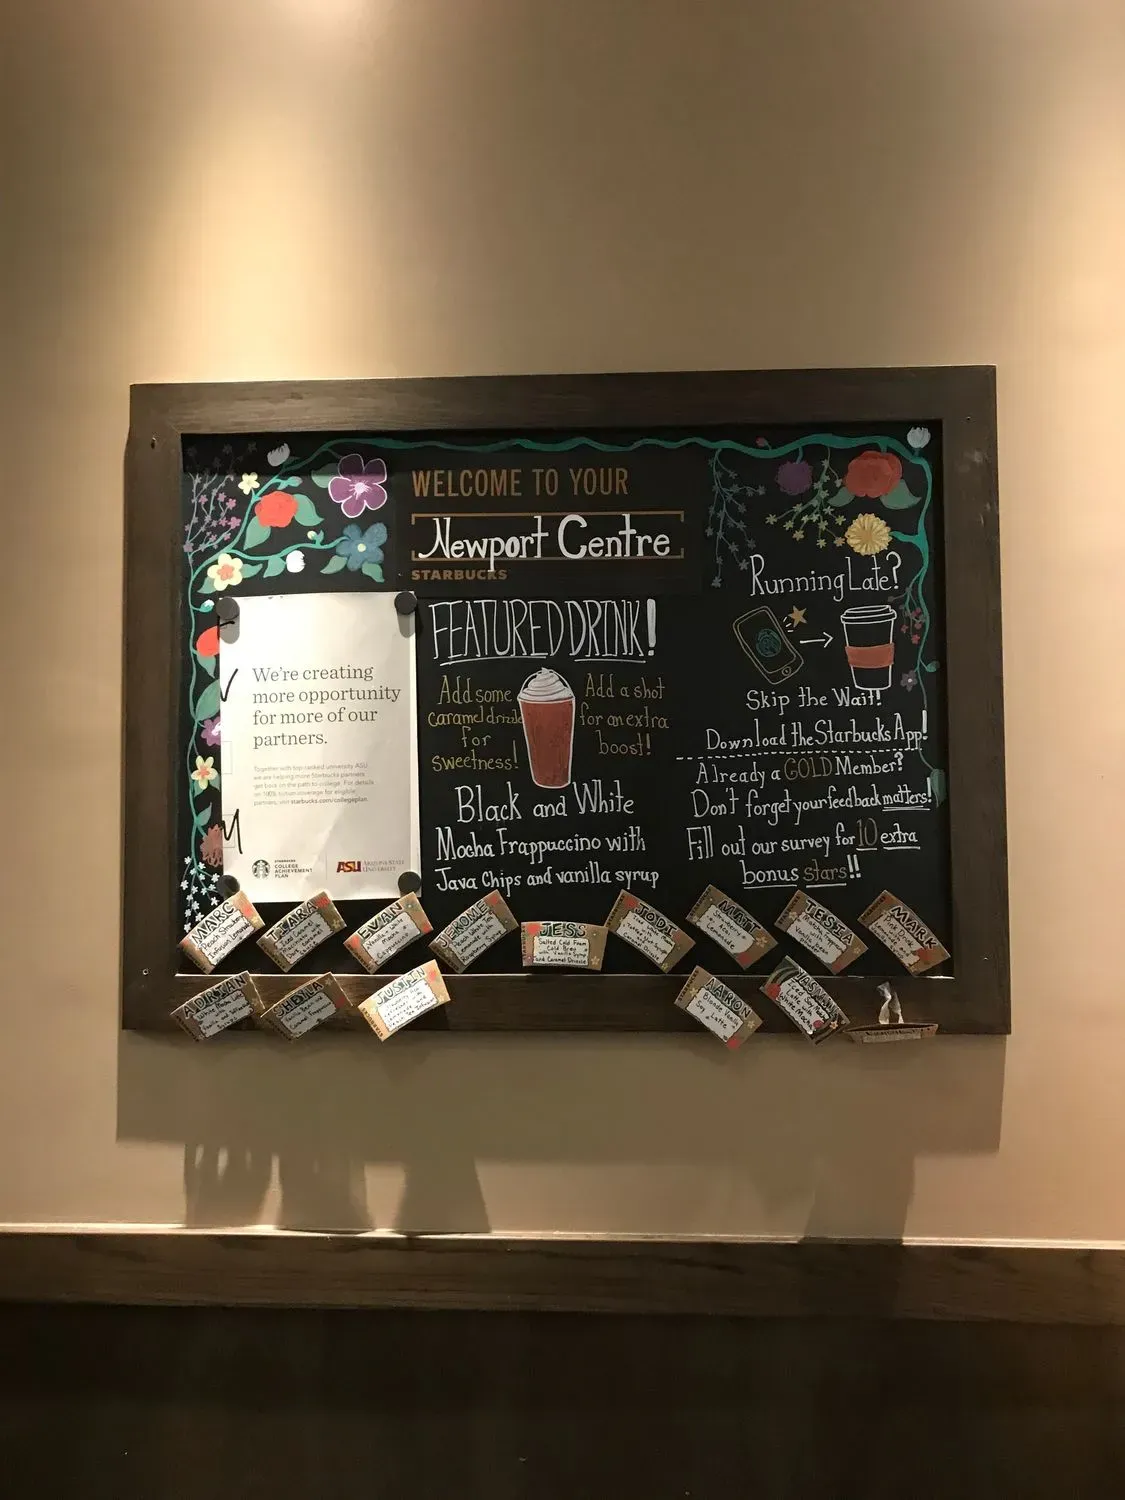 WELCOME TO YOUR
Newport Centre
STARBUCKS
We're creating
more opportunity
for more of our
partners.
Together with top-ranked university ASU
we are helping more Starbucks partners
get back on the path to college. For details
on 100% tuition coverage for eligible
partners, visit starbucks.com/collegeplan.
STARBUCKS
COLLEGE
ACHIEVEMENT
PLAN
ASU ARIZONA STATE
UNIVERSITY
FEATURED DRINK!
Add some
caramel drizzle
for
sweetness!
Add a shot
for an extra
boost!
Black and White
Mocha Frappuccino with
Java Chips and vanilla syrup
Running Late?
Skip the Wait!
Download the Starbucks App!
Already a GOLD Member?
Don't forget your feedback matters!
Fill out our survey for 10 extra
bonus stars!!
MARC
TIARA
EVAN
JEROME
JESS
Salted Cold Foam
Cold Brew
with Vanilla Syrup
and Caramel Drizzle
JODI
MATT
Strawberry
Acai
Lemonade
TESIA
MARK
ADRYAN
SHEILA
JUSTIN
AARON
Blonde Vanilla
Latte